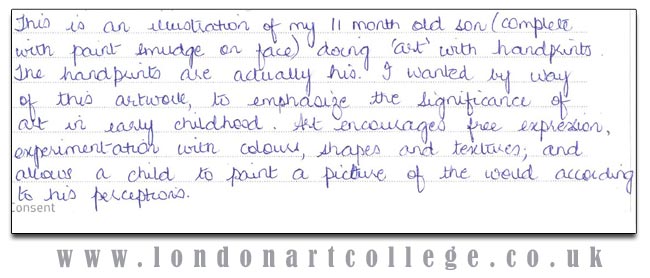 This is an illustration of my 11 month old son (complete
with paint smudge on face) doing 'art' with handprints.
The handprints are actually his. I wanted by way
of this artwork, to emphasize the significance of
art in early childhood. Art encourages free expression,
experimentation with colours, shapes and textures; and
allows a child to paint a picture of the world according
to his perceptions.
Consent
www.londonartcollege.co.uk